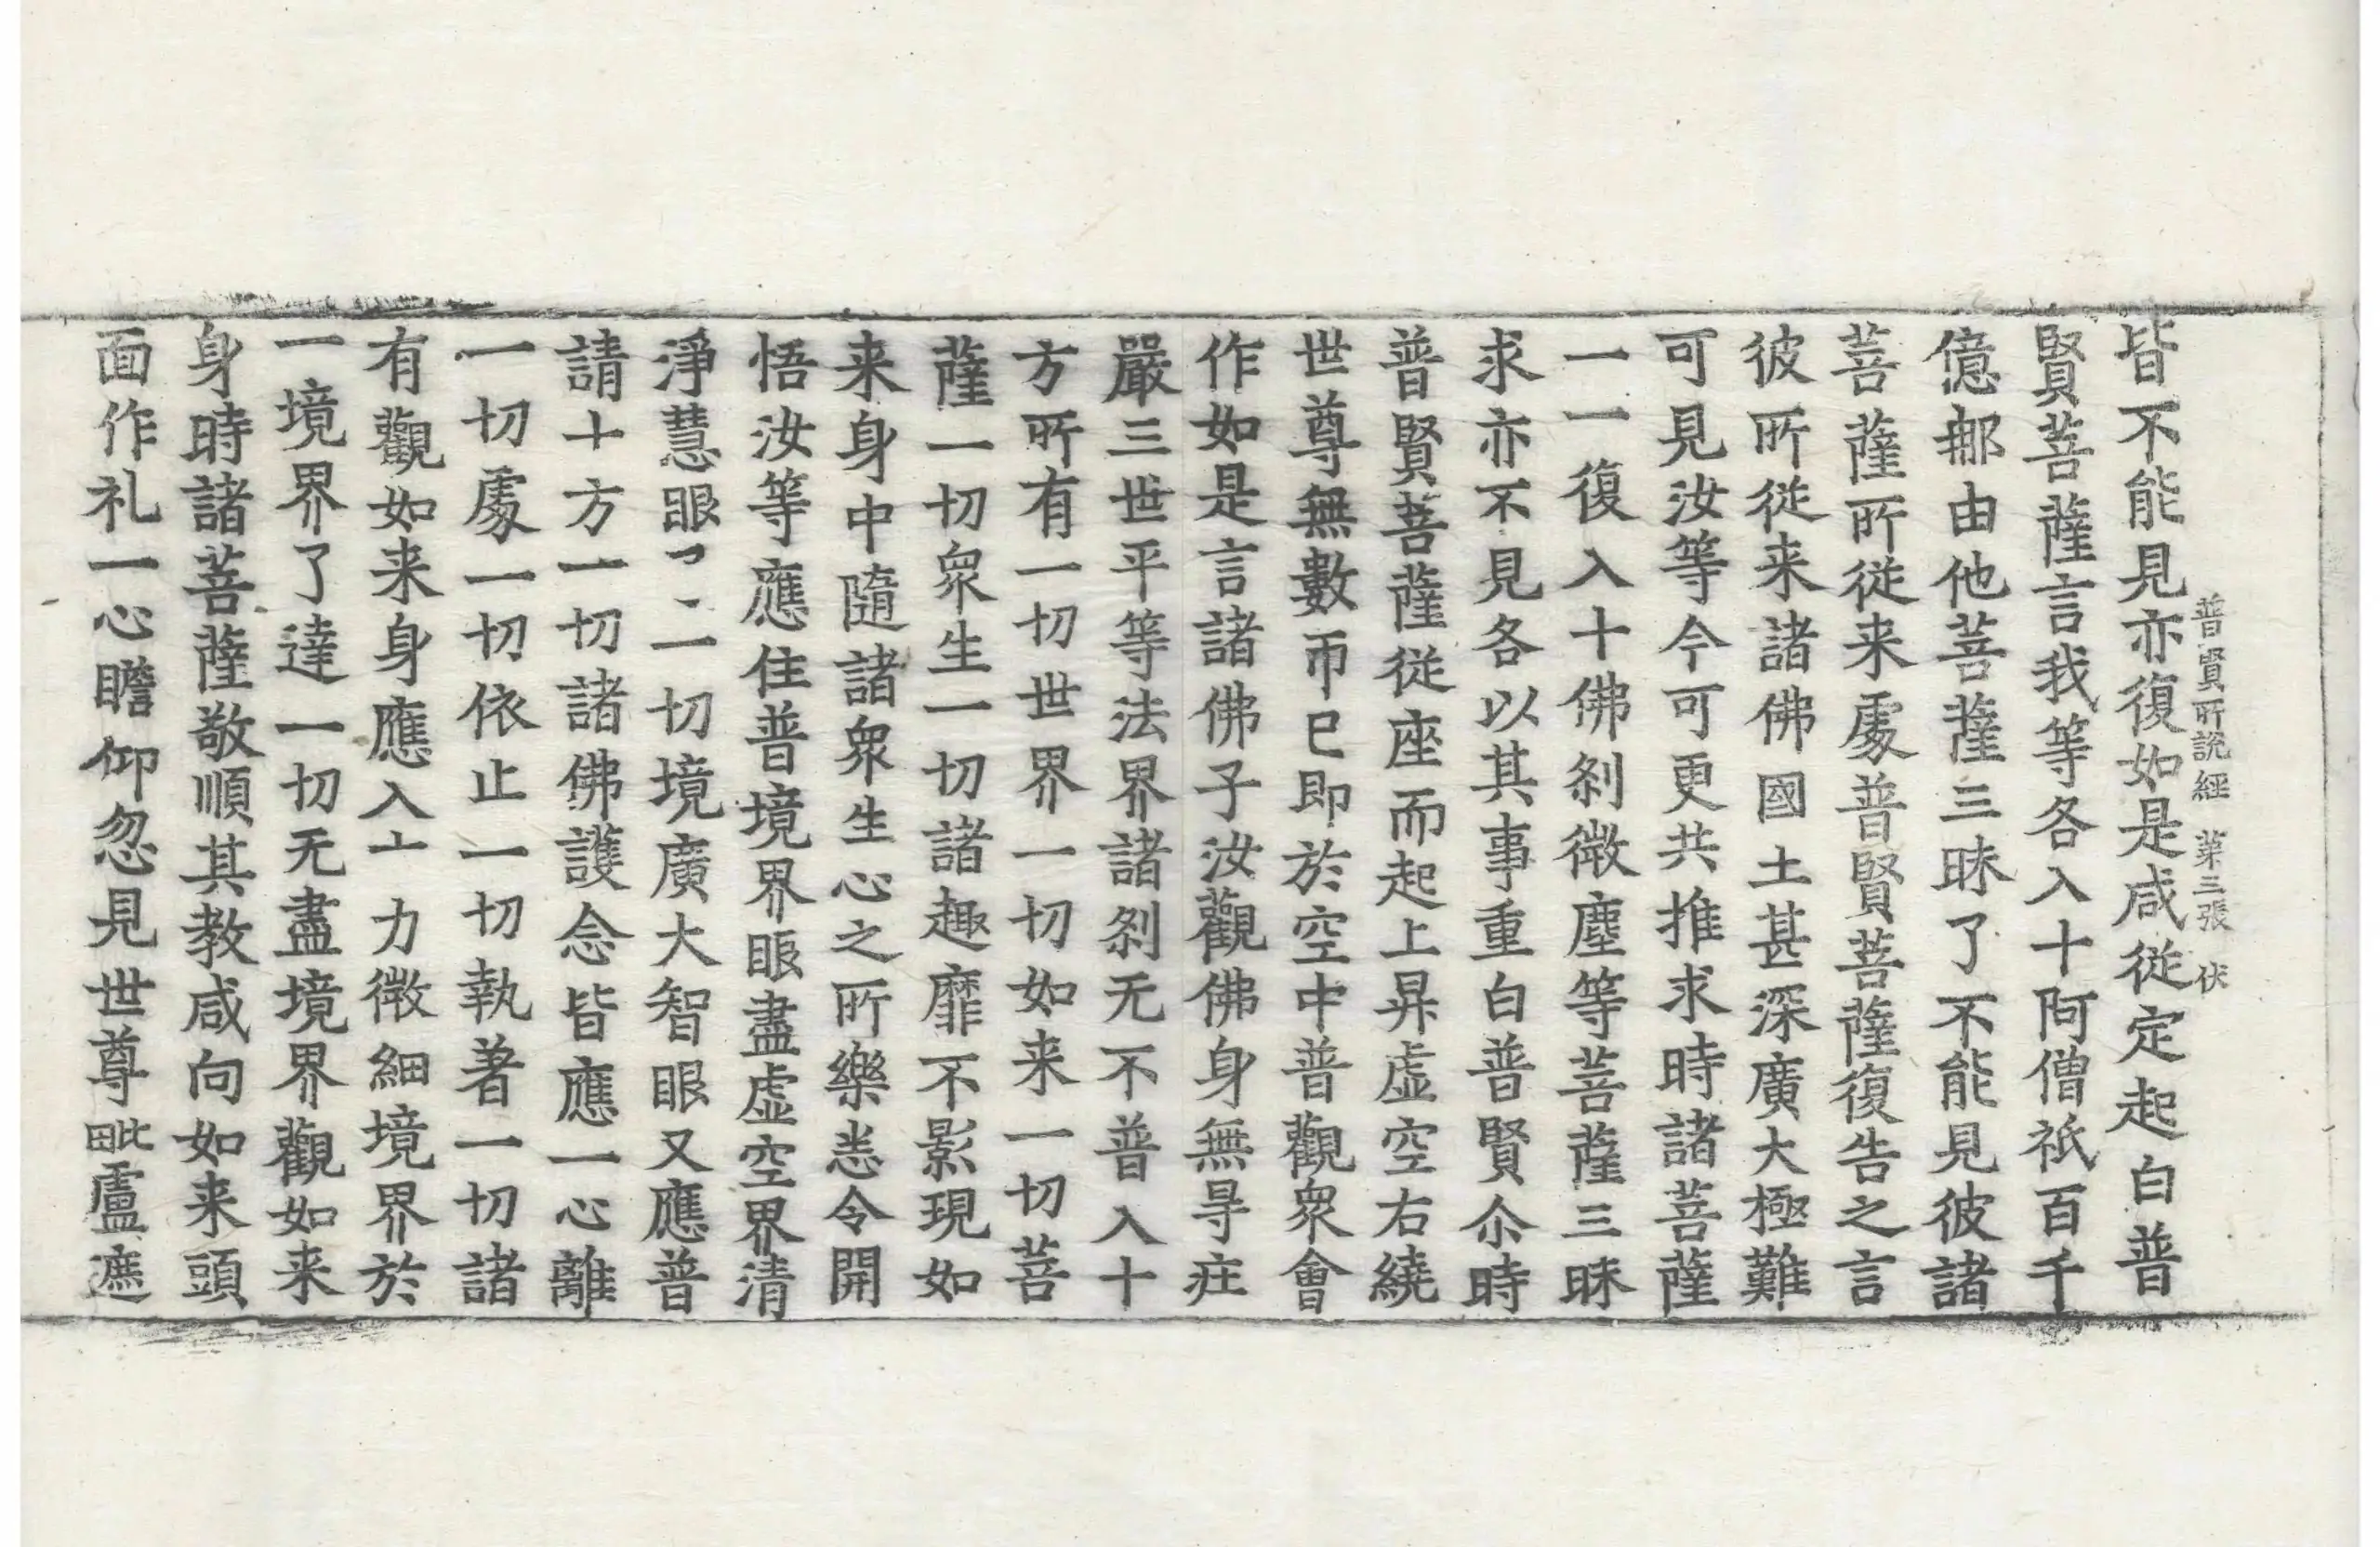 普賢所說經 苐三張 伏
皆不能見亦復如是咸従定起白普
賢菩薩言我等各入十阿僧祇百千
億那由他菩薩三昧了不能見彼諸
菩薩所従来處普賢菩薩復告之言
彼所従来諸佛國土甚深廣大極難
可見汝等今可更共推求時諸菩薩
一一復入十佛刹微塵等菩薩三昧
求亦不見各以其事重白普賢尒時
普賢菩薩従座而起上昇虚空右繞
世尊無數帀已即於空中普觀衆會
作如是言諸佛子汝觀佛身無㝵㽵
嚴三世平等法界諸刹无不普入十
方所有一切世界一切如来一切菩
薩一切衆生一切諸趣靡不影現如
来身中隨諸衆生心之所樂悉令開
悟汝等應住普境界眼盡虚空界清
淨慧眼了一切境廣大智眼又應普
請十方一切諸佛護念皆應一心離
一切處一切依止一切執著一切諸
有觀如来身應入十力微細境界於
一境界了達一切无盡境界觀如来
身時諸菩薩敬順其教咸向如来頭
面作礼一心瞻仰忽見世尊毗盧遮